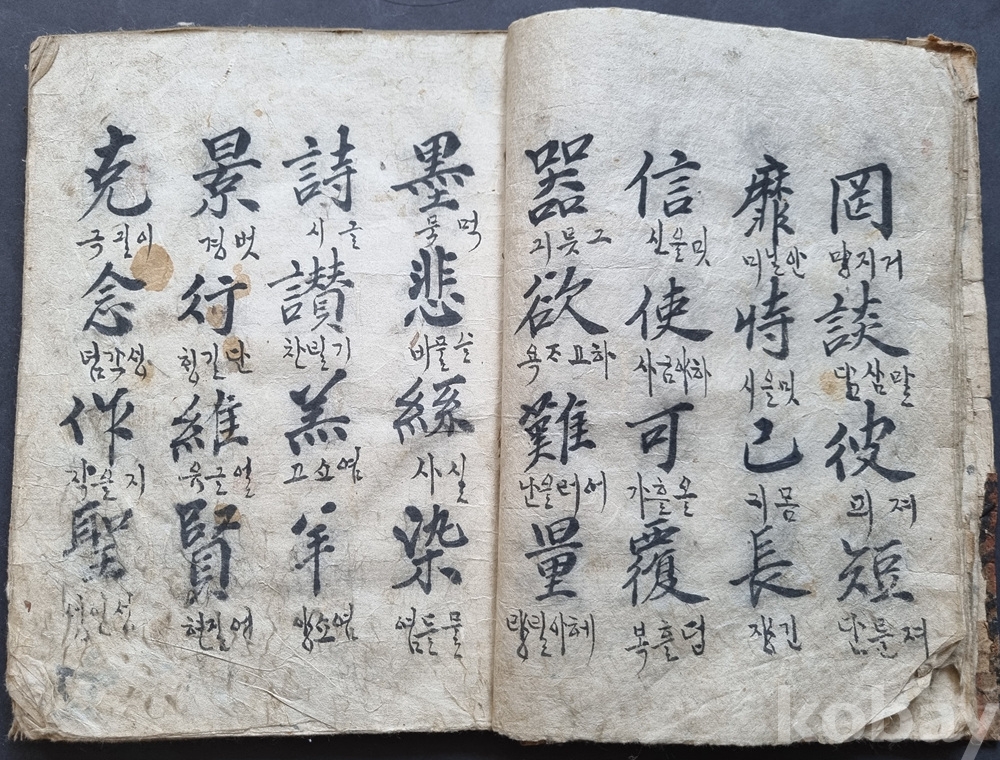 罔
거지망
談
말삼담
彼
져피
短
져른단
靡
안닐미
恃
밋을시
己
몸긔
長
긴쟝
信
밋을신
使
하야검사
可
올흘가
覆
덥흘복
器
그릇긔
欲
하고조욕
難
어려을난
量
헤아릴량
墨
먹믁
悲
슬플비
絲
실사
染
물들염
詩
글시
讃
기릴찬
羔
염소고
羊
염소양
景
볏경
行
단길힝
維
얼글유
賢
어질현
克
이긜극
念
생각념
作
지을작
聖
성인성
kobay